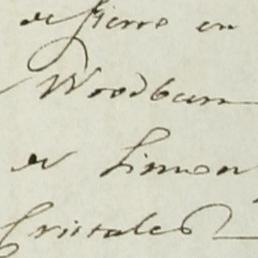 de fierro en
Woodburn
de Limon
Cristales